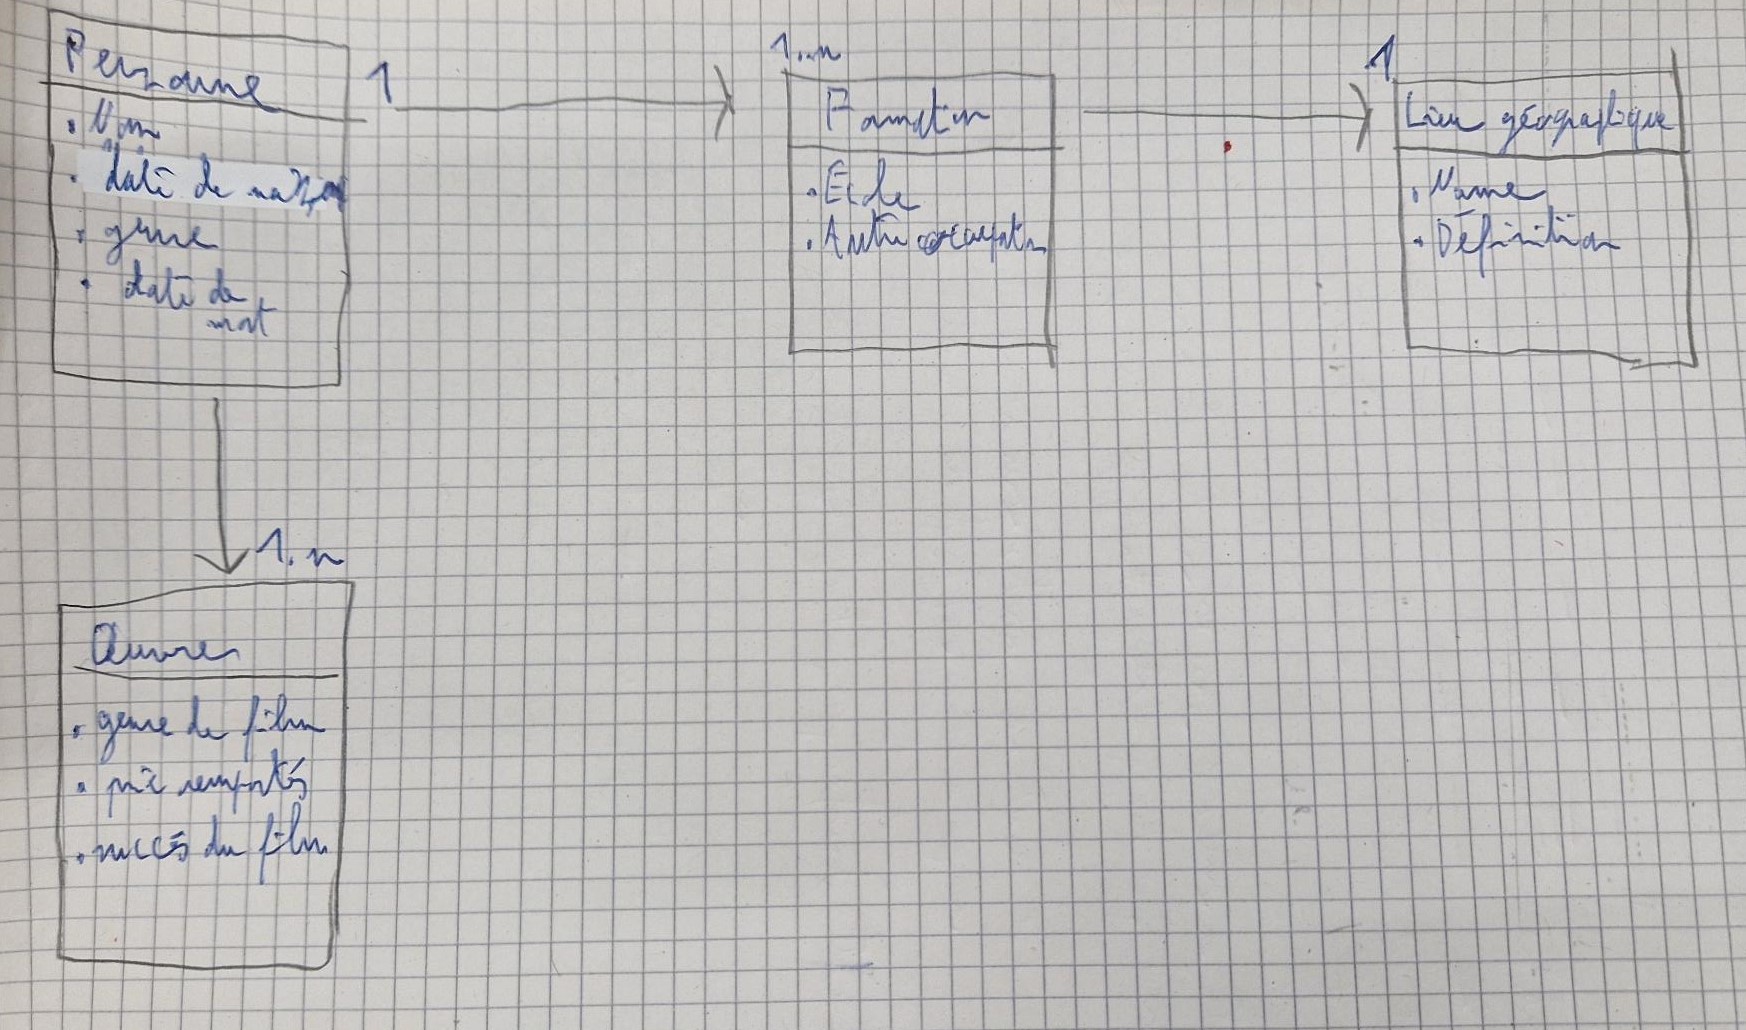 Personne
1
• Nom
• date de naiss
• genre
• date de
mort
1..n
Formation
• École
• Autre occupation
1
Lieu géographique
• Name
• Définition
1.n
Œuvres
• genre de film
• prix remportés
• succès du film